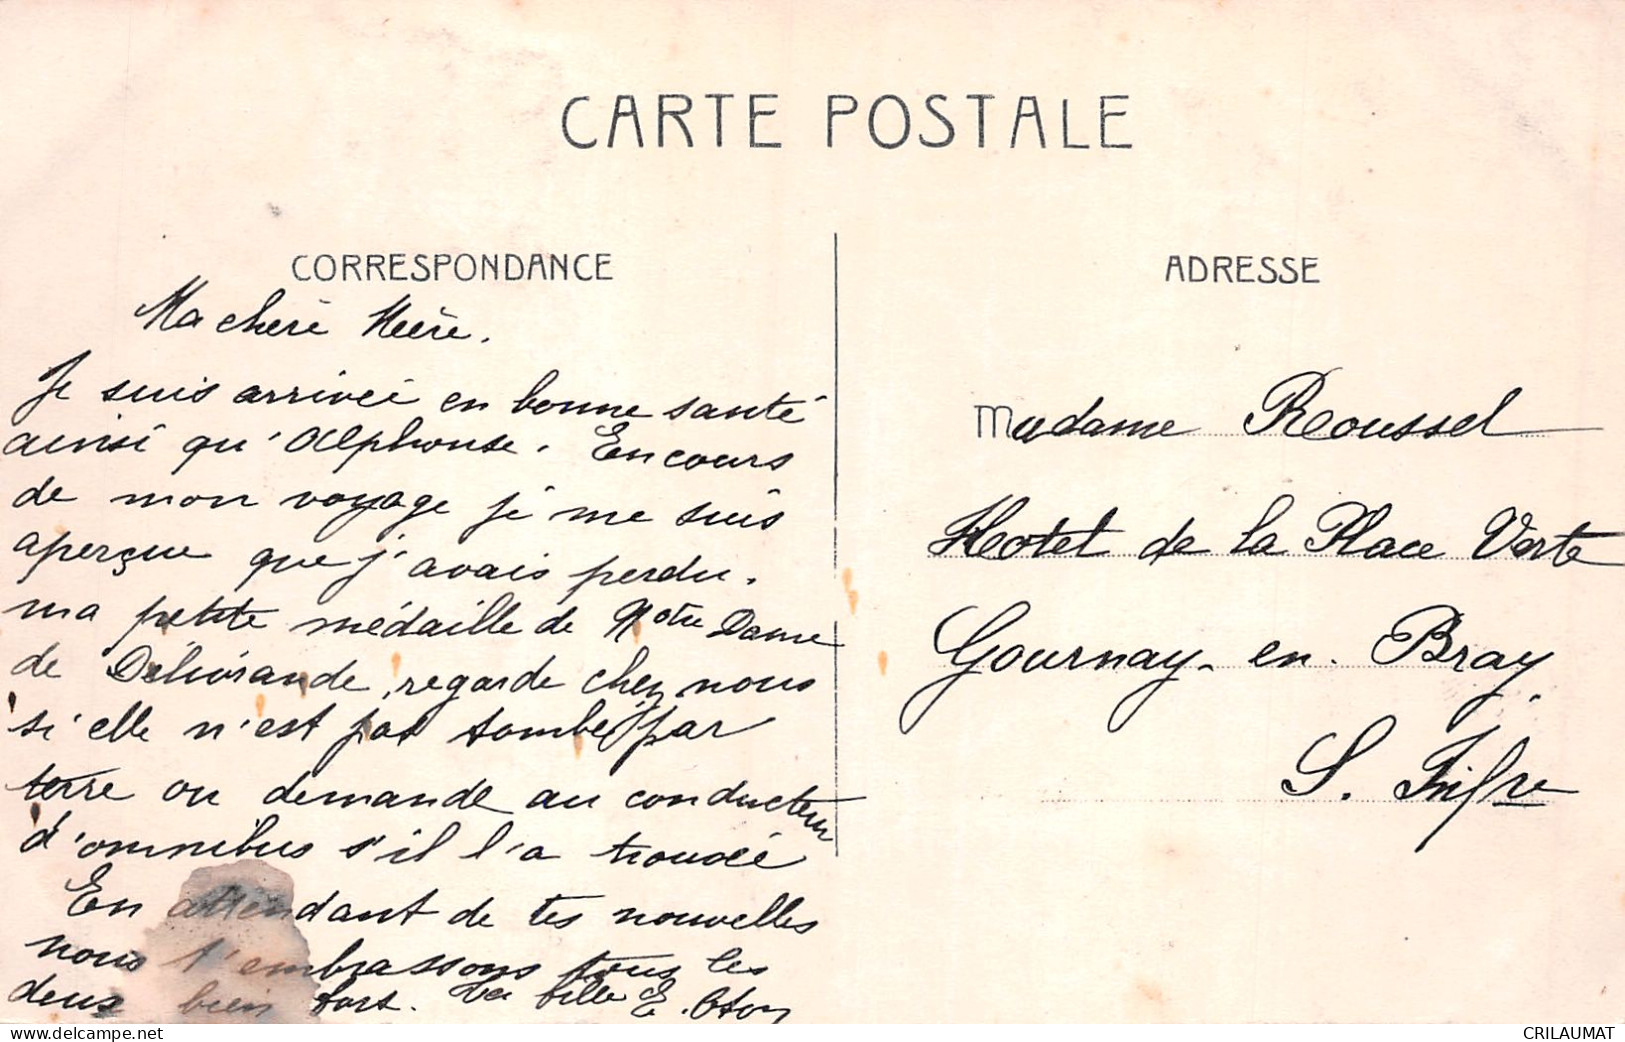 CARTE POSTALE
CORRESPONDANCE
Ma chère Mère.
Je suis arrivée en bonne santé
ainsi qu'Alphonse. En cours
de mon voyage je me suis
aperçue que j'avais perdu.
ma petite médaille de Notre Dame
de Délivrande, regarde chez nous
si elle n'est pas tombé par
terre ou demande au conducteur
d'omnibus s'il l'a trouvé
En attendant de tes nouvelles
nous t'embrassons tous les
deux bien fort. Ta fille E.
ADRESSE
Madame Roussel
Hotel de la Place Verte
Gournay-en-Bray
S. Infre
CRILAUMAT